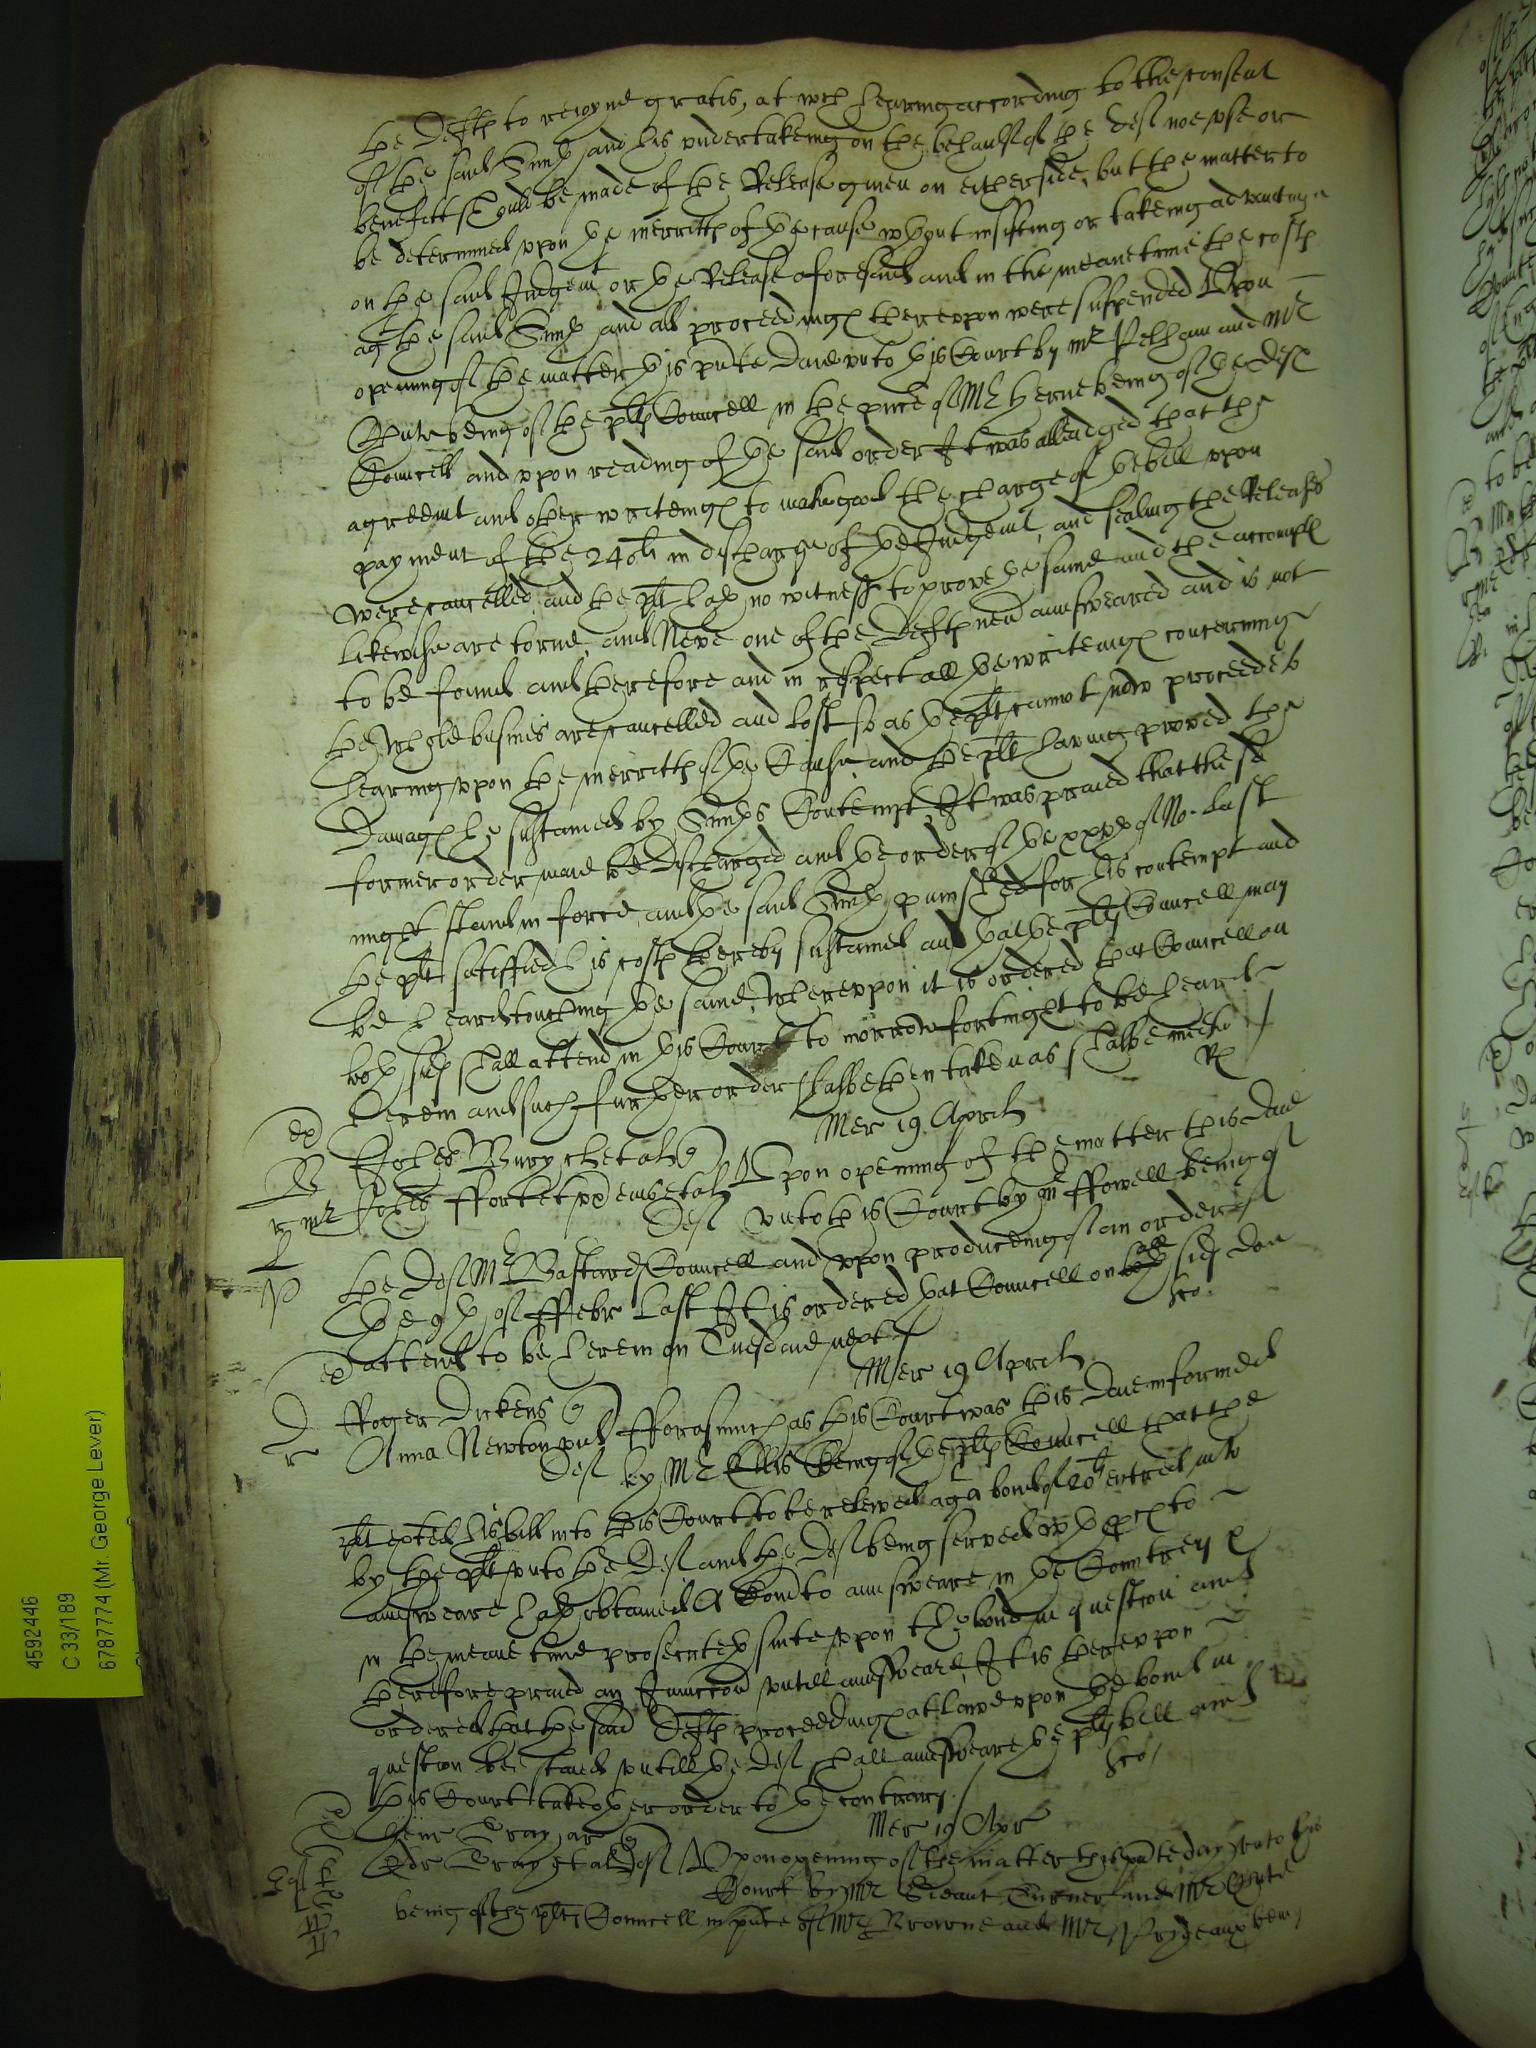 the Defts to rejoyne gratis, at wch hearing according to the consent
of the said Smyth and his undertakeing on the behaulf of the deft noe use or
benefitt should be made of the Release given on either side, but the matter to
be determined upon the merritts of the cause wthout insisting or takeing advantage
on the said Judgemt or the Release aforesaid and in the meane time the costs
agt the said Smyth and all proceedings thereupon were suspended Upon
opening of the matter this pnte daie unto this Court by mr Pelham and Mr
being of the plts Councell in the pnce of Mr Herne being of the defts
Councell and upon reading of the said order It was alleadged that the
agreemt and other writeings to make good the charge of the bill upon
payment of the 240li in discharge of the Judgemt, and sealing the Releases
were cancelled, and the plt hath no witness to prove the same and the accompts
likewise are torne, and Neve one of the Defts nev answeared and is not
to be found and therefore and in respect all the writeings concerning
the whole busines are cancelled and lost so as the plt cannot now proceede to
hearing upon the merritts of the Cause, and the plt having proved the
Damages he sustained by Smyths Contempt, It was praied that the sd
former order maie be discharged and the order of the xxvth of No: last
might stand in force, and the said Smyth punished for his contempt and
the plt satisfied his costs thereby sustained and that the plts Councell may
be heard touching the same, Whereupon it is ordered that Councell on
both sides shall attend in this Court to morrow fortnight to be heard
herein and such further order shalbe then taken as shalbe meete
Mer 19 Aprilis
Johes Bury et al
Johes et al Upon opening of the matter this daie
Deft unto this Court by mr ffowell being of
the Deft Mr Bastards Councell and upon produceing of an order of
the 9th of ffebr last It is ordered that Councell on all sides doe
attend to be herein on Tuesdaie next
Mer 19 Aprilis
Roger Dickens
Anna Newton vid fforasmuch as this Court was this daie informed
Deft by Mr Ellis being of the plts Councell that the
plt exhted his bill into this Court to be releived agt a bond of 20li entred into
by the plt unto the Deft and the Deft being served wth pces to
answeare hath obteined A Comn to answeare in the Countrey &
in the meane time prosecuteth suite upon the bond in question and
therefore praied an Junccon untill answeare, It is thereupon
ordered that the said Defts proceedings at lawe upon the bond in
question bee staied untill the Deft shall answeare the plts bill and
this Court take other order to the contrary
Mer 19 Apr
Tray ar
Tray et al Deft Upon opening of the matter this pnte day unto this
Court by Mr Srieant Turner and Mr
being of the plts Councell in pnce of Mr Browne and Mr Prydeaux being
4592446
C 33/189
6787774 (Mr. George Lever)